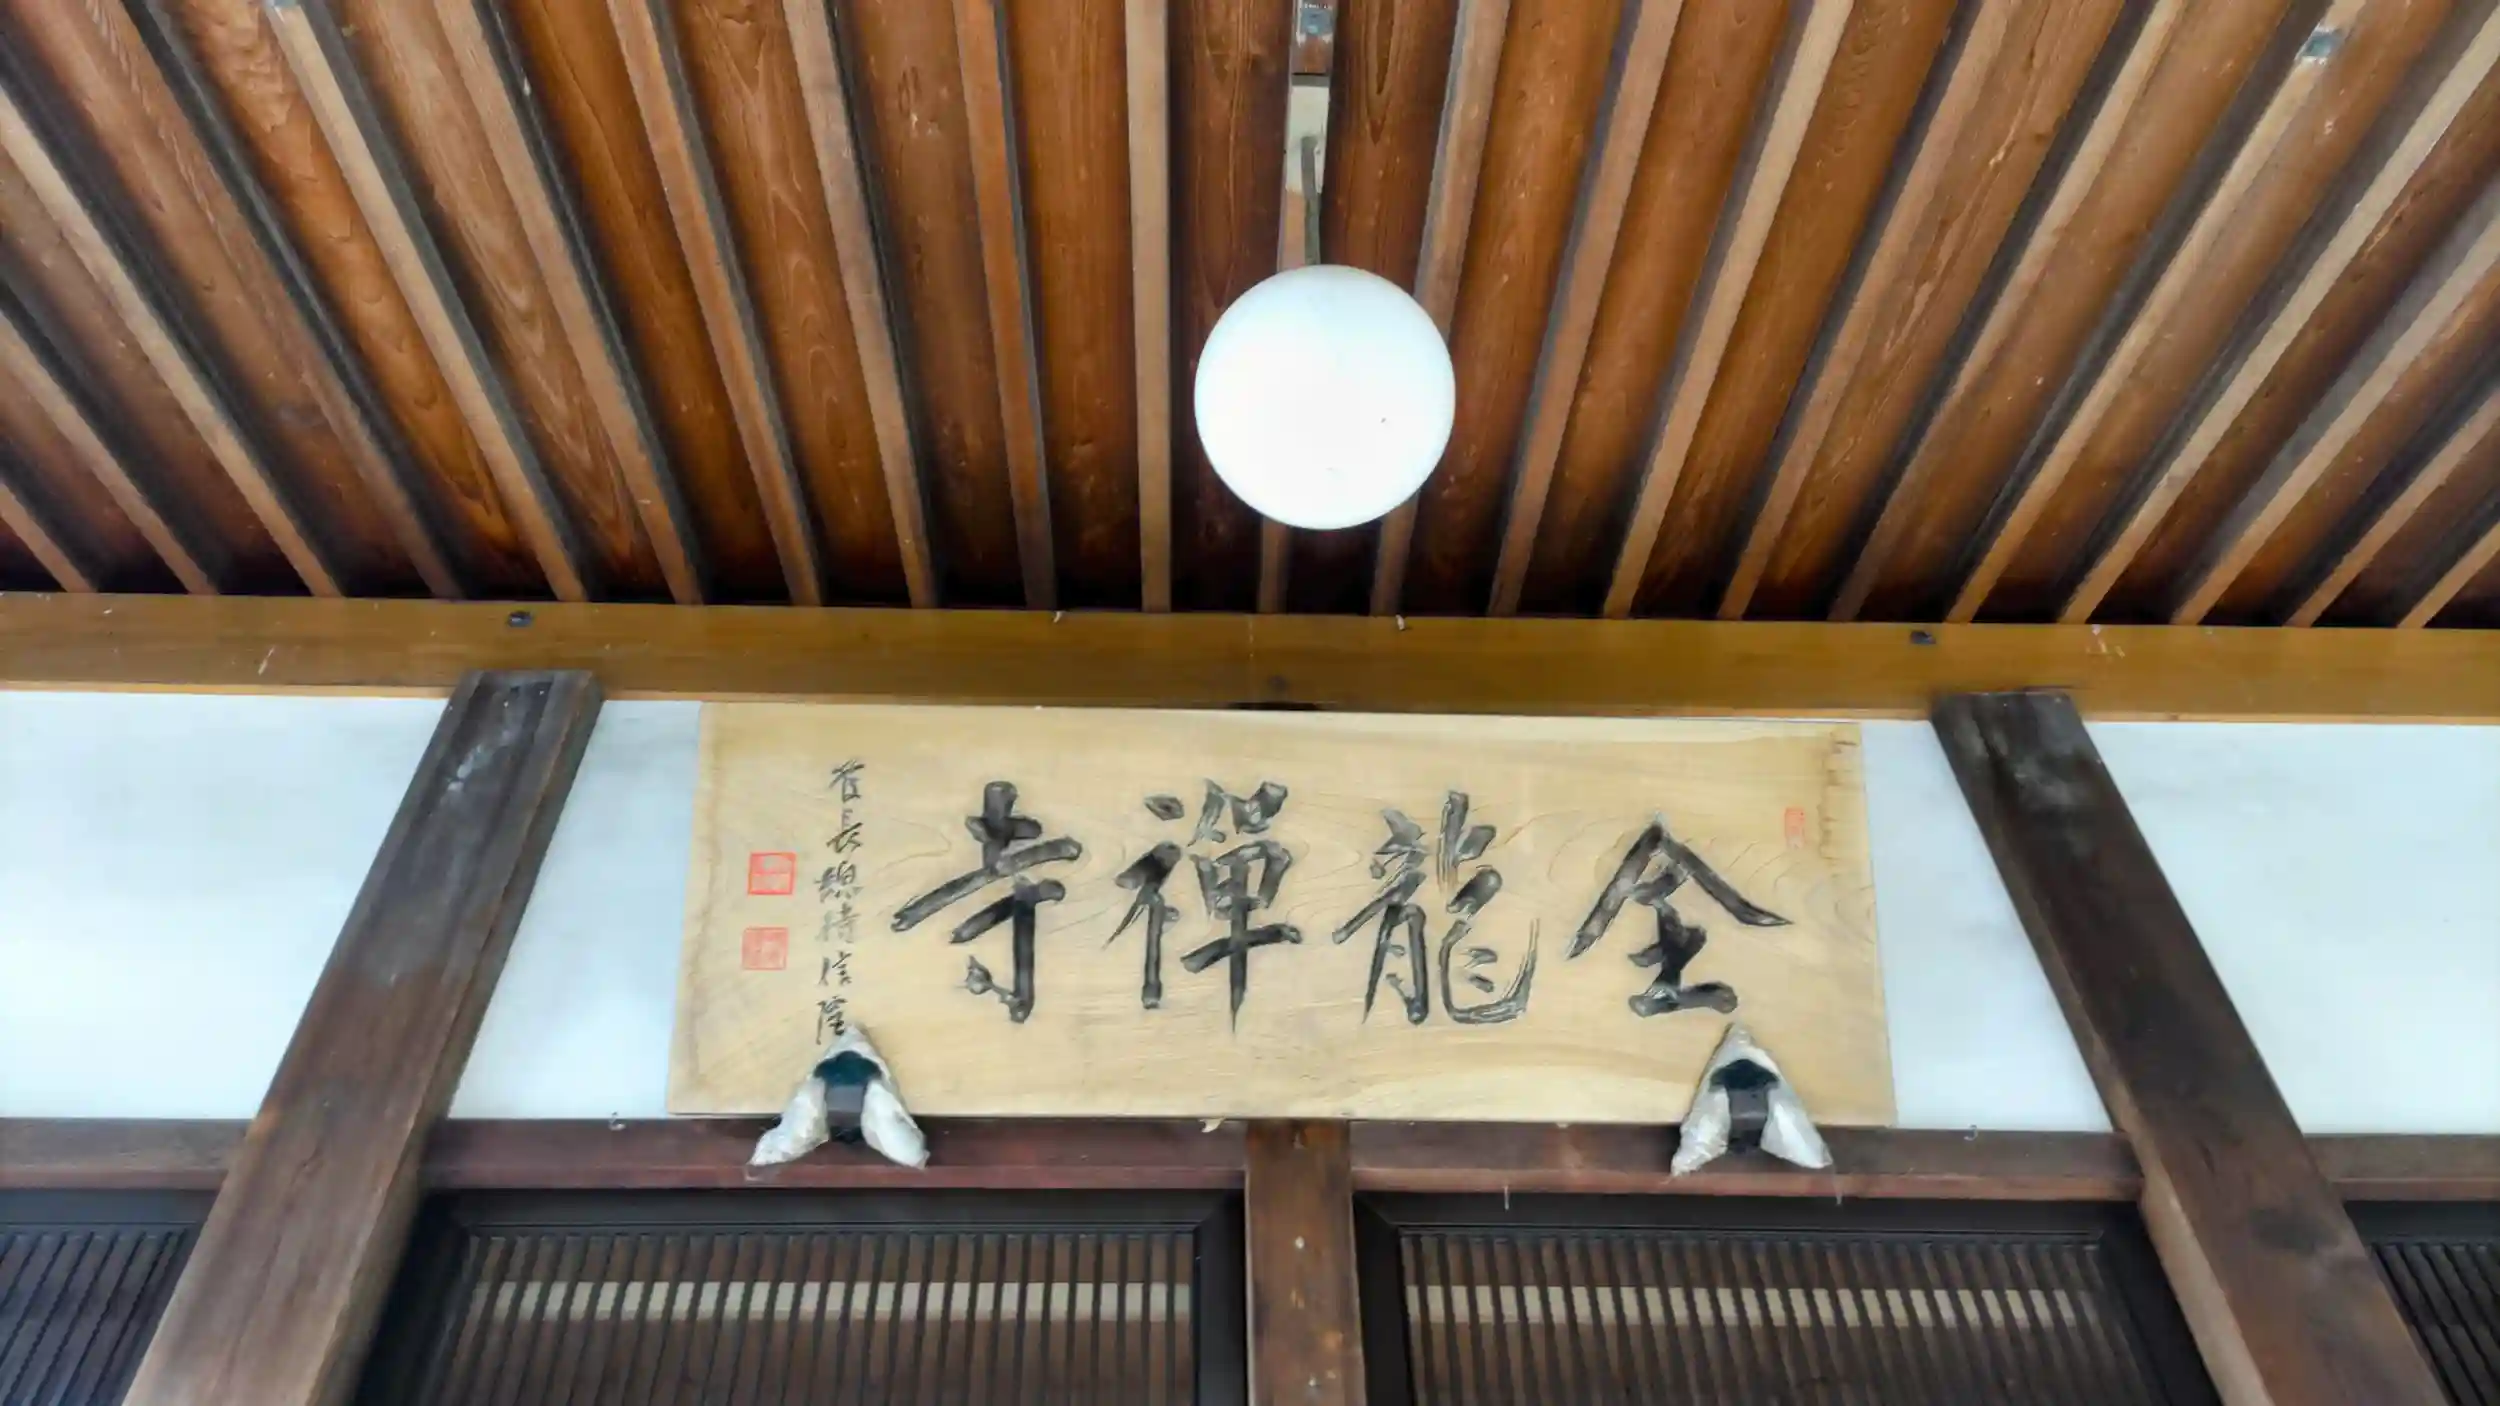 全龍禪寺
管長總持信隆